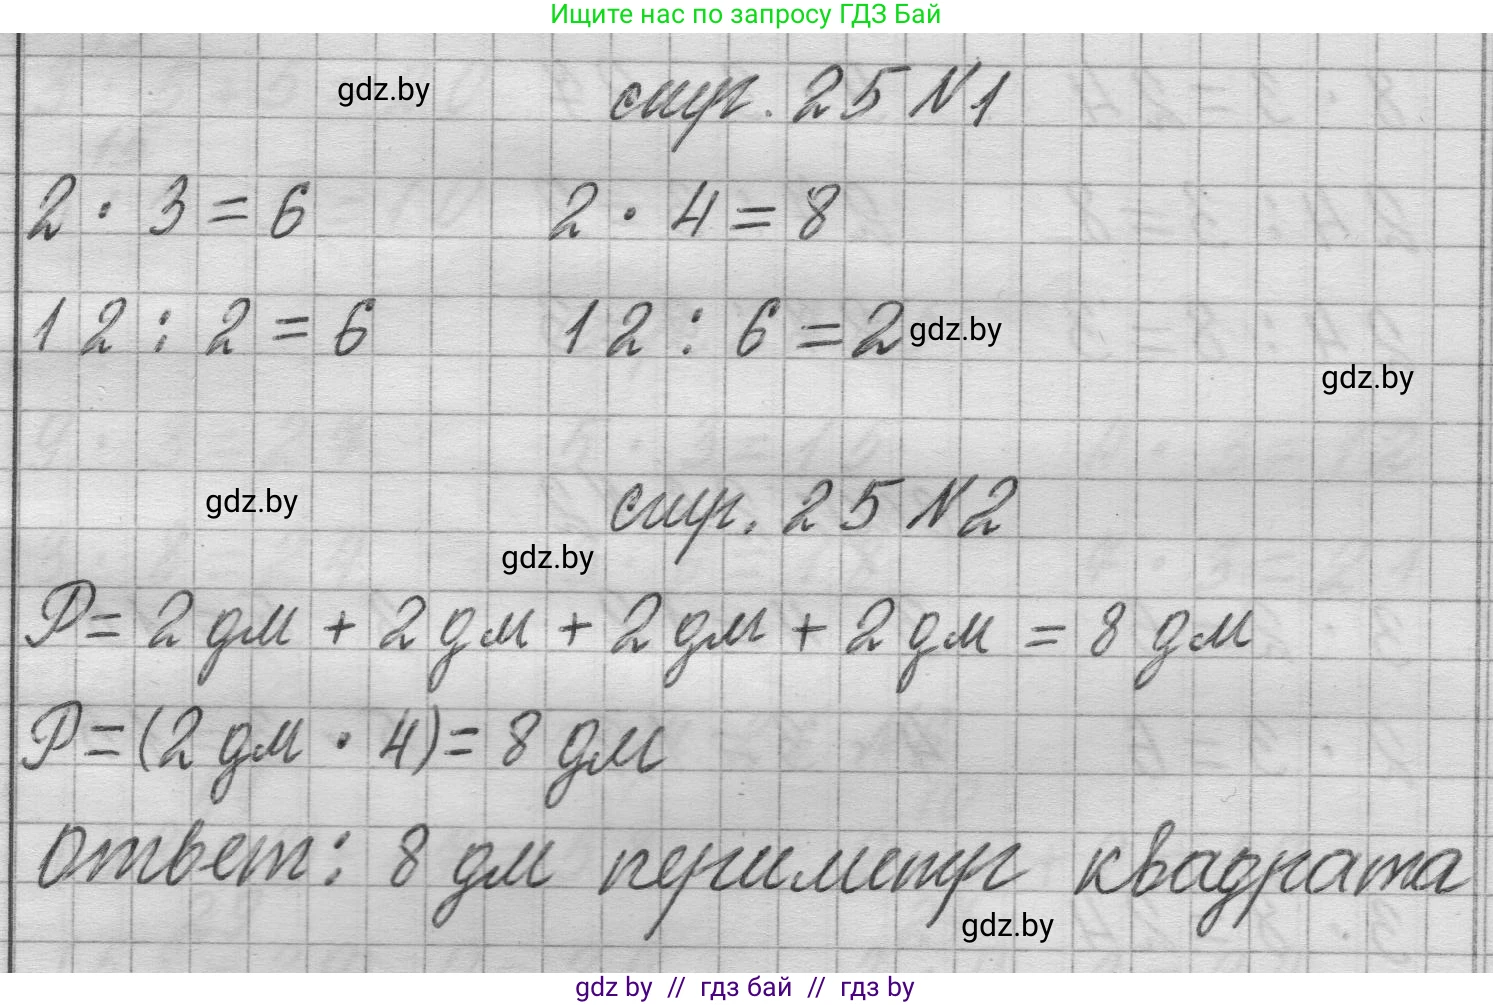 Ищите нас по запросу ГДЗ Бай
gdz.by
стр. 25 N1
2 · 3 = 6 2 · 4 = 8
12 : 2 = 6 12 : 6 = 2
gdz.by
gdz.by
gdz.by
стр. 25 N2
gdz.by
P = 2 дм + 2 дм + 2 дм + 2 дм = 8 дм
P = (2 дм · 4) = 8 дм
ответ: 8 дм периметр квадрата
gdz.by
gdz by // гдз бай // гдз by